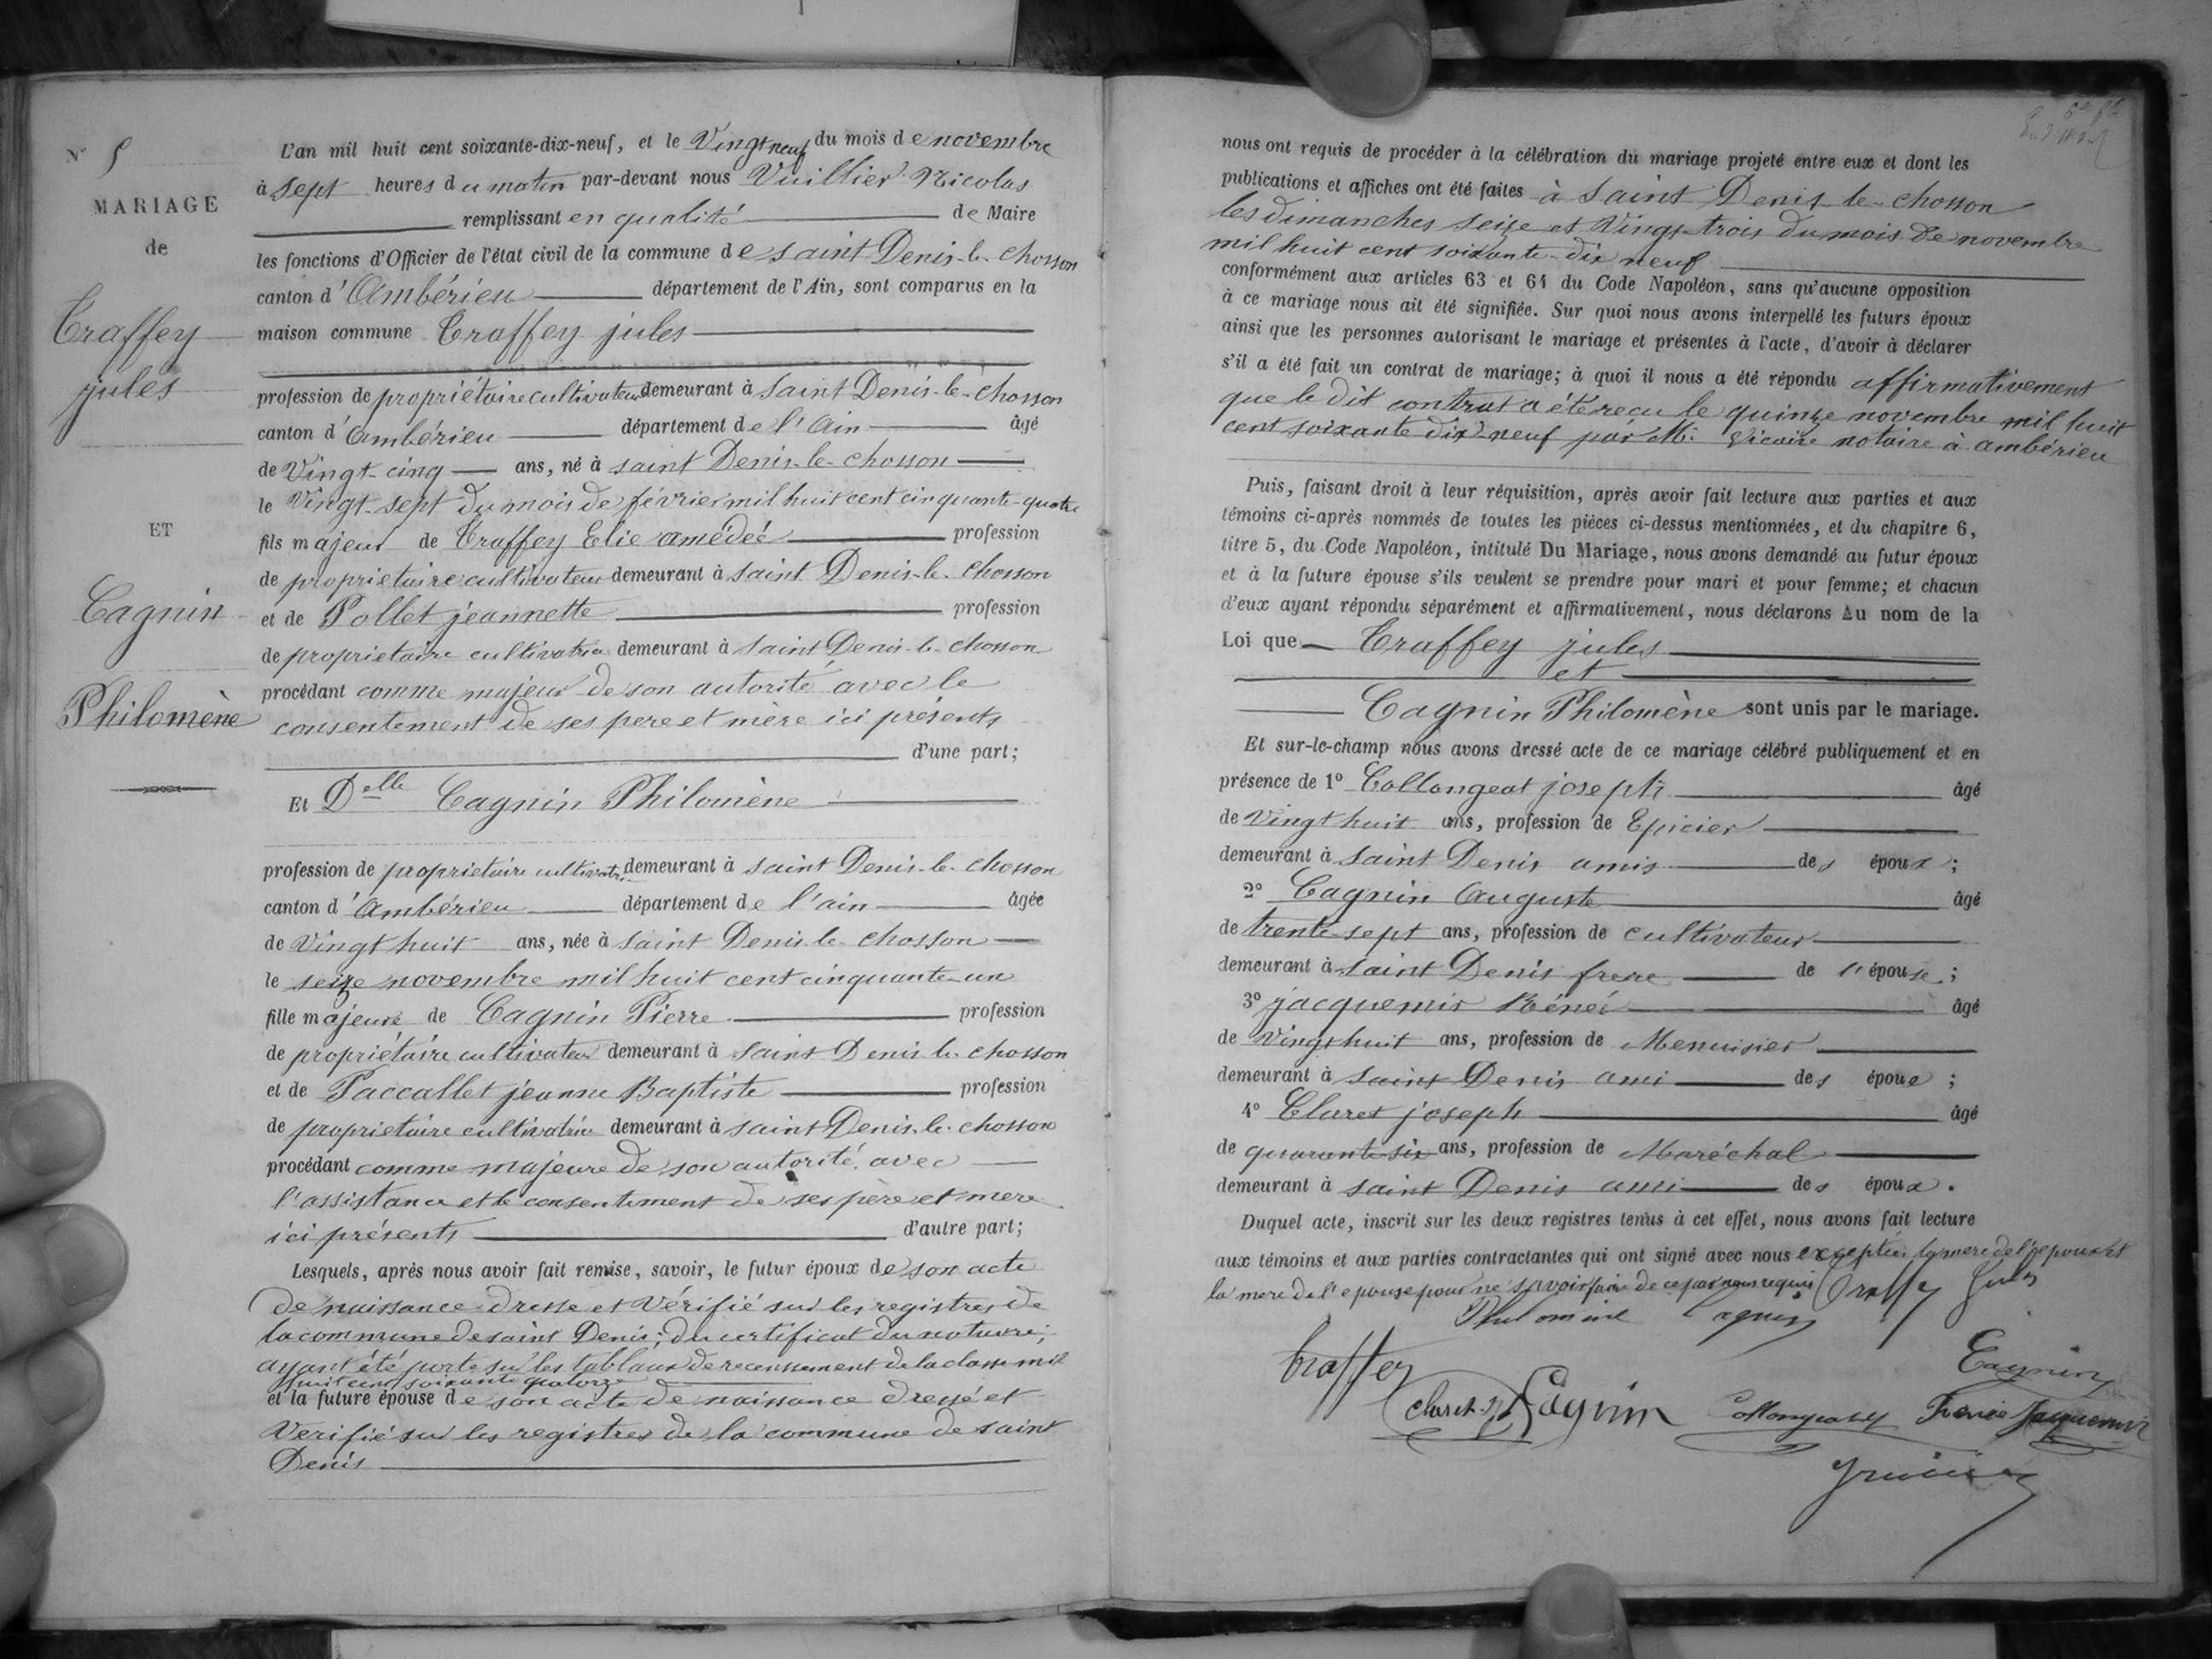 N° 5
MARIAGE
de
Traffey
jules
ET
Cagnin
Philomène
L'an mil huit cent soixante-dix-neuf, et le Vingt neuf du mois de novembre
à sept heures du matin par-devant nous Vuillier Nicolas
remplissant en qualité de Maire
les fonctions d'Officier de l'état civil de la commune de saint Denis-le-chosson
canton d'Ambérieu département de l'Ain, sont comparus en la
maison commune Traffey jules
profession de propriétaire cultivateur demeurant à saint Denis-le-chosson
canton d'ambérieu département de l'ain âgé
de Vingt-cinq ans, né à saint Denis-le-chosson
le Vingt-sept du mois de février mil huit cent cinquante-quatre
fils majeur de Traffey Elie amédée profession
de propriétaire cultivateur demeurant à saint Denis-le-chosson
et de Pollet jeannette profession
de propriétaire cultivatrice demeurant à saint Denis-le-chosson
procédant comme majeur de son autorité avec le
consentement de ses pere et mère ici présents
d'une part;
Et Delle Cagnin Philomène
profession de propriétaire cultivatrice demeurant à saint Denis-le-chosson
canton d'Ambérieu département de l'ain âgée
de Vingt huit ans, née à saint Denis-le-chosson
le seize novembre mil huit cent cinquante-un
fille majeure de Cagnin Pierre profession
de propriétaire cultivateur demeurant à saint Denis-le-chosson
et de Paccallet jeanne Baptiste profession
de propriétaire cultivatrice demeurant à saint Denis-le-chosson
procédant comme majeure de son autorité avec
l'assistance et le consentement de ses père et mere
ici présents d'autre part;
Lesquels, après nous avoir fait remise, savoir, le futur époux de son acte
de naissance dressé et Vérifié sur les registres de
la commune de saint Denis; du certificat du notaire;
ayant été porté sur les tableaux de recensement de la classe mil
huit cent soixante quatorze
et la future épouse de son acte de naissance dressé et
Verifié sur les registres de la commune de saint
Denis
nous ont requis de procéder à la célébration du mariage projeté entre eux et dont les
publications et affiches ont été faites à saint Denis-le-chosson
les dimanches seize et Vingt-trois du mois de novembre
mil huit cent soixante-dix neuf
conformément aux articles 63 et 64 du Code Napoléon, sans qu'aucune opposition
à ce mariage nous ait été signifiée. Sur quoi nous avons interpellé les futurs époux
ainsi que les personnes autorisant le mariage et présentes à l'acte, d'avoir à déclarer
s'il a été fait un contrat de mariage; à quoi il nous a été répondu affirmativement
que le dit contrat a été reçu le quinze novembre mil huit
cent soixante dix-neuf par Me Vicaire notaire à ambérieu
Puis, faisant droit à leur réquisition, après avoir fait lecture aux parties et aux
témoins ci-après nommés de toutes les pièces ci-dessus mentionnées, et du chapitre 6,
titre 5, du Code Napoléon, intitulé Du Mariage, nous avons demandé au futur époux
et à la future épouse s'ils veulent se prendre pour mari et pour femme; et chacun
d'eux ayant répondu séparément et affirmativement, nous déclarons Au nom de la
Loi que Traffey jules
et
Cagnin Philomène sont unis par le mariage.
Et sur-le-champ nous avons dressé acte de ce mariage célébré publiquement et en
présence de 1° Collongeat joseph âgé
de Vingt huit ans, profession de Epicier
demeurant à saint Denis amis des époux;
2° Cagnin Auguste âgé
de trente-sept ans, profession de cultivateur
demeurant à saint Denis frere de l'épouse;
3° jacquemir Réné âgé
de Vingt huit ans, profession de Menuisier
demeurant à saint Denis ami des époux;
4° Claret joseph âgé
de quarante-six ans, profession de Maréchal
demeurant à saint Denis ami des époux.
Duquel acte, inscrit sur les deux registres tenus à cet effet, nous avons fait lecture
aux témoins et aux parties contractantes qui ont signé avec nous exceptées la mere de l'epoux et
la mere de l'epouse pour ne savoir faire de ce par nous requis Traffey Jules
Philomène Cagnin
Traffey Cagnin
Claret J Cagnin Collongeat J Jacquemir